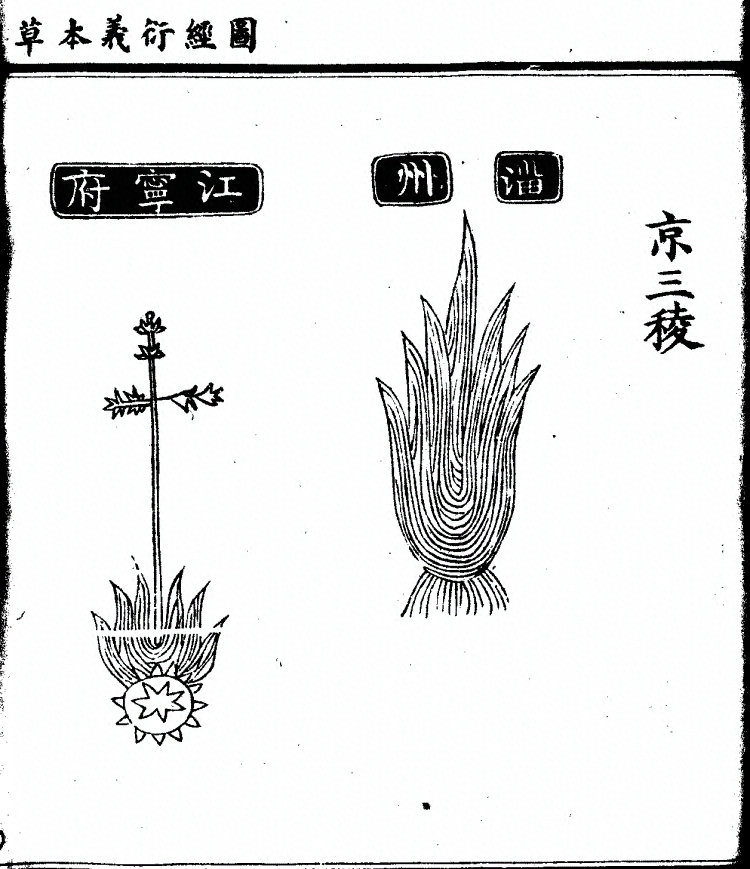 圖經衍義本草
京三稜
淄州
江寧府